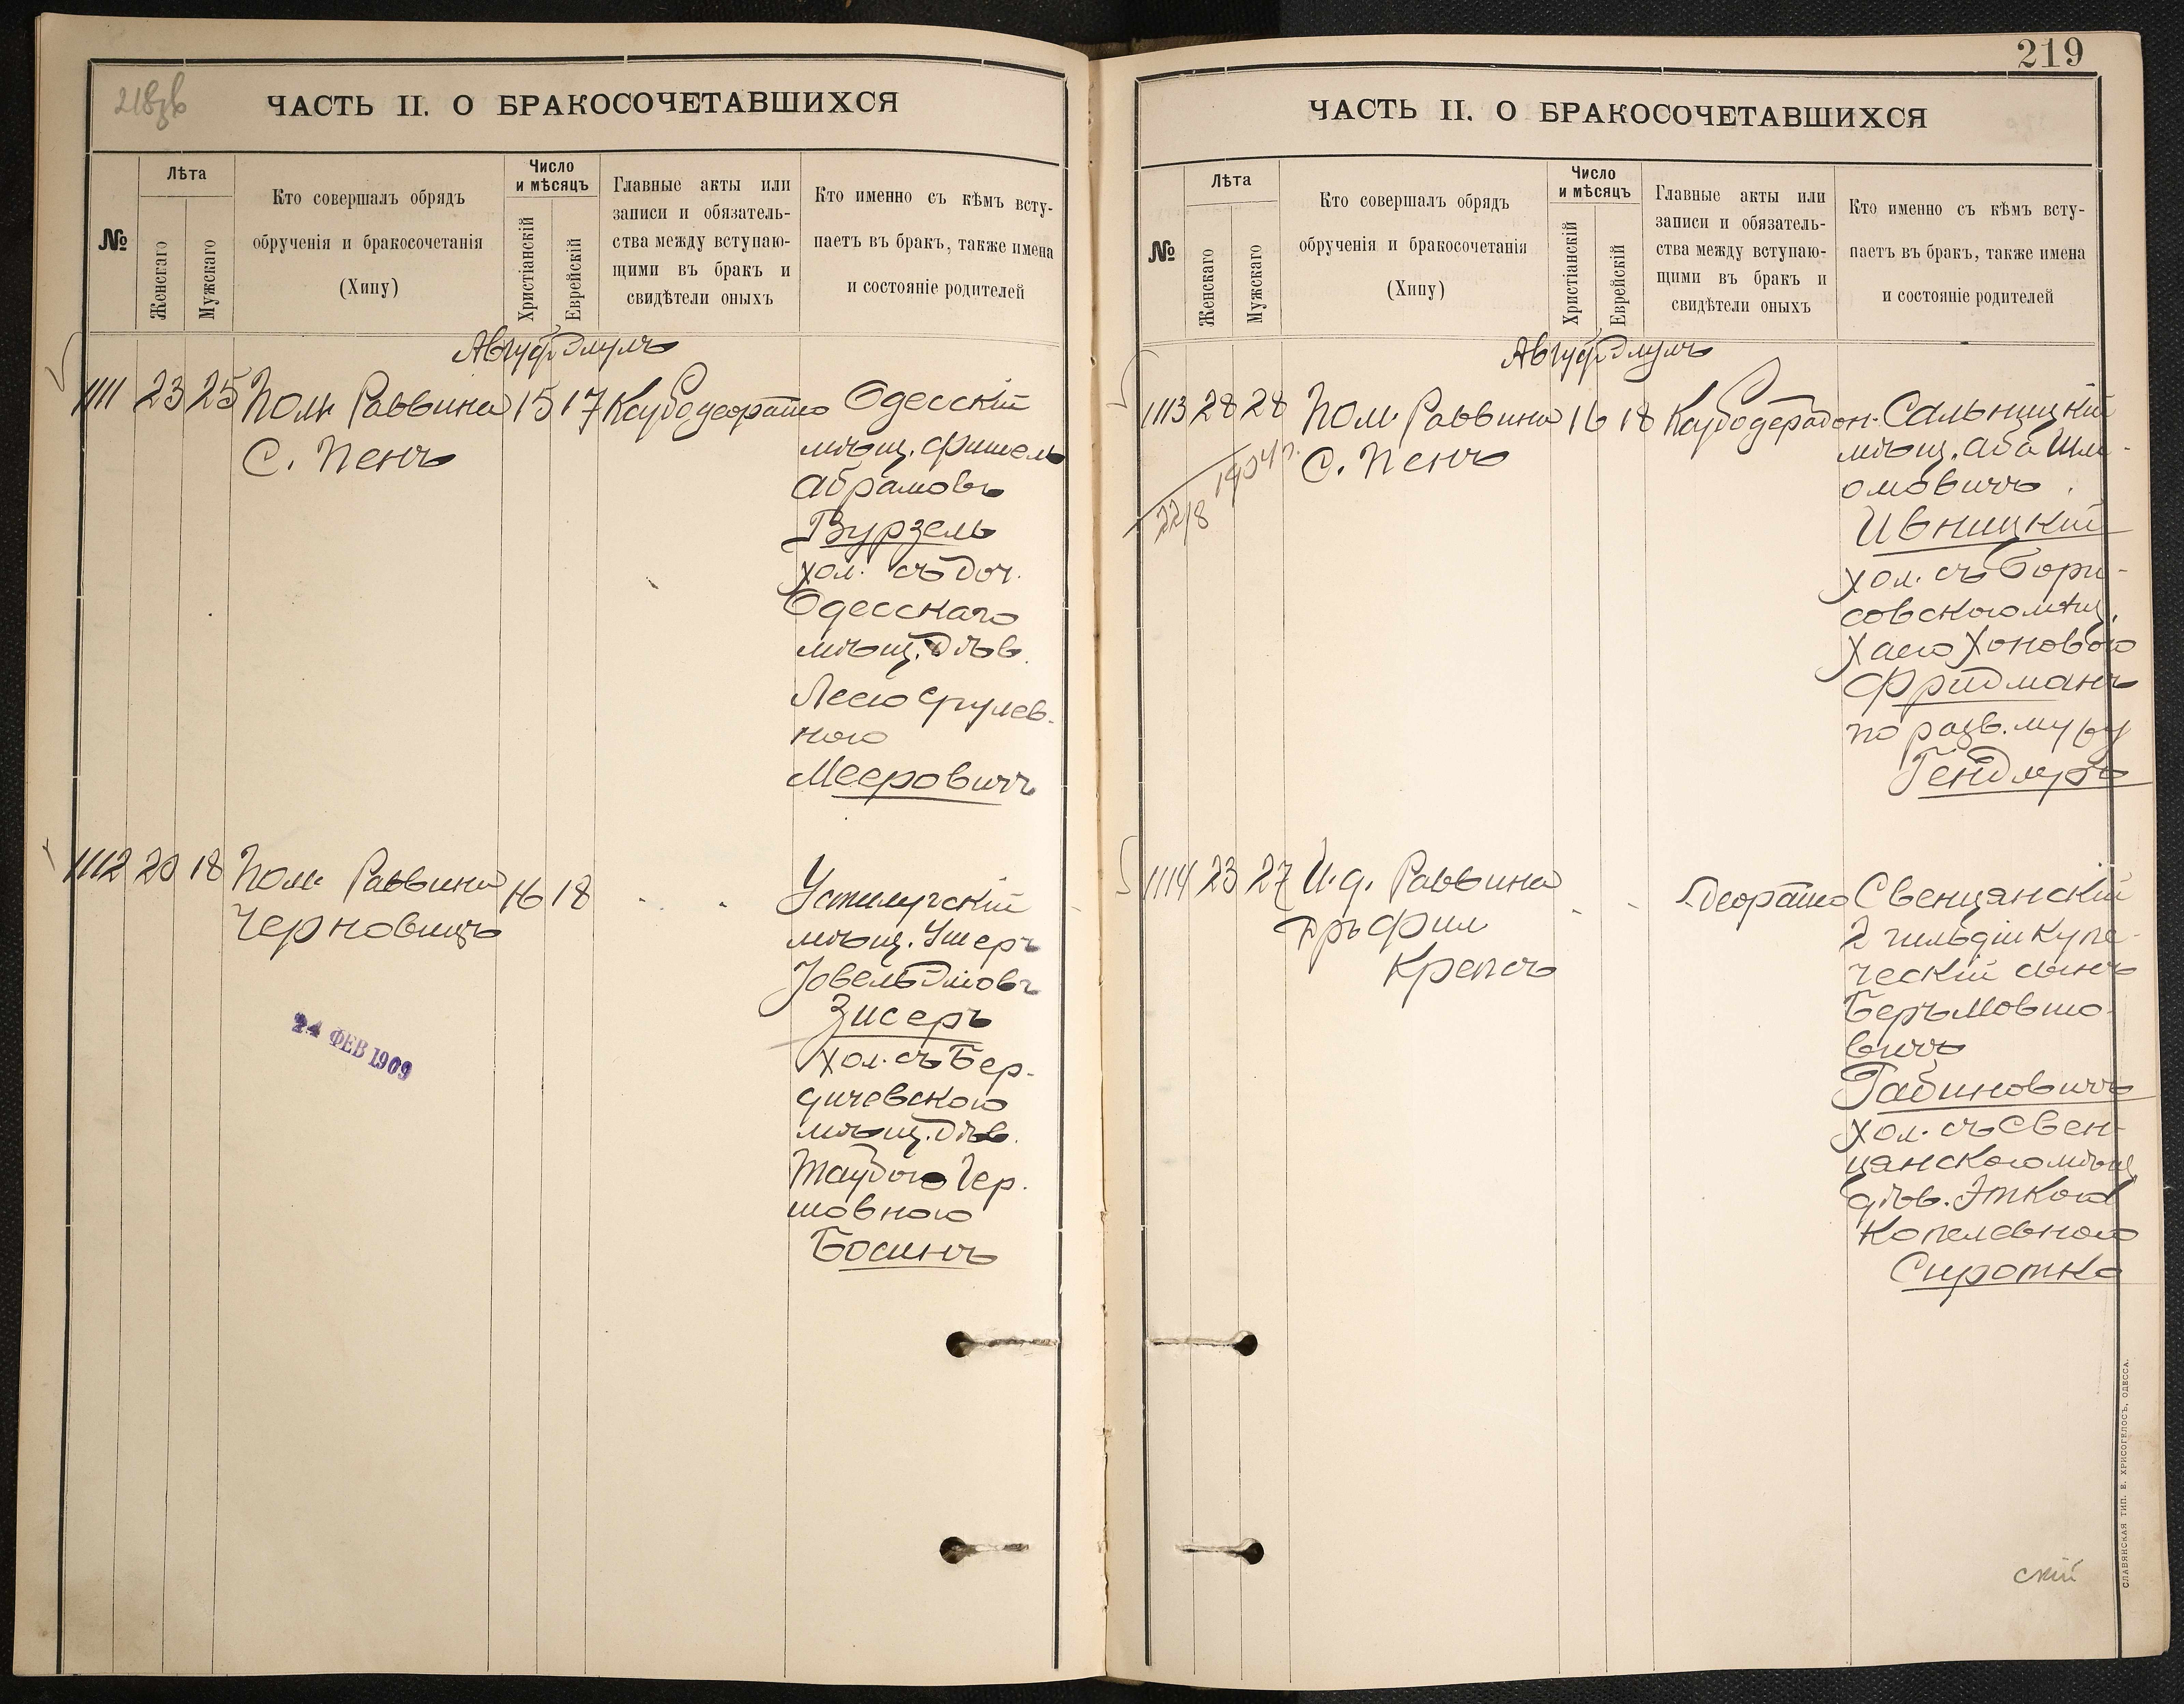 218об
ЧАСТЬ II. О БРАКОСОЧЕТАВШИХСЯ
№
Лѣта
Женскаго
Мужскаго
Кто совершалъ обрядъ
обрученія и бракосочетанія
(Хипу)
Число
и мѣсяцъ
Христіанскій
Еврейскій
Главные акты или
записи и обязатель-
ства между вступаю-
щими въ бракъ и
свидѣтели оныхъ
Кто именно съ кѣмъ всту-
паетъ въ бракъ, также имена
и состояніе родителей
Авгус. Элулъ
1111 23 25 Пом. Раввина 15 17
С. Пенъ
Одесскій
мѣщ. Фишель
Абрамовъ
Вурзель
хол. съ доч.
Одесскаго
мѣщ. дѣв.
Лею Срулев-
ною
Мееровичъ
1112 20 18 Пом. Раввина 16 18
Черновицъ
24 ФЕВ 1909
Устилугскій
мѣщ. Ушеръ
Зисеръ
хол. съ Бер-
дичевскою
мѣщ. дѣв.
Таубою Гер-
шовною
Босинъ
219
ЧАСТЬ II. О БРАКОСОЧЕТАВШИХСЯ
№
Лѣта
Женскаго
Мужскаго
Кто совершалъ обрядъ
обрученія и бракосочетанія
(Хипу)
Число
и мѣсяцъ
Христіанскій
Еврейскій
Главные акты или
записи и обязатель-
ства между вступаю-
щими въ бракъ и
свидѣтели оныхъ
Кто именно съ кѣмъ всту-
паетъ въ бракъ, также имена
и состояніе родителей
Авгус. Элулъ
1113 28 28 Пом. Раввина 16 18
С. Пенъ
22/8 1904 г.
Сальницкій
мѣщ. Аба Шле-
омовичъ
Ивницкій
хол. съ Бори-
совскою мѣщ.
Хаею Хоновою
Фридманъ
по разв. мужу
Гендлеръ
1114 23 27 И. д. Раввина
Дръ Фил
Крепсъ
Свенцянскій
2 гильдіи купе-
ческій сынъ
Беръ Мовшо-
вичъ
Рабиновичъ
хол. съ Свен-
цянскою мѣщ
дѣв. Эткою
Копелевною
Сиротка
скій
СЛАВЯНСКАЯ ТИП. Е. ХРИСОГЕЛОСЪ, ОДЕССА.